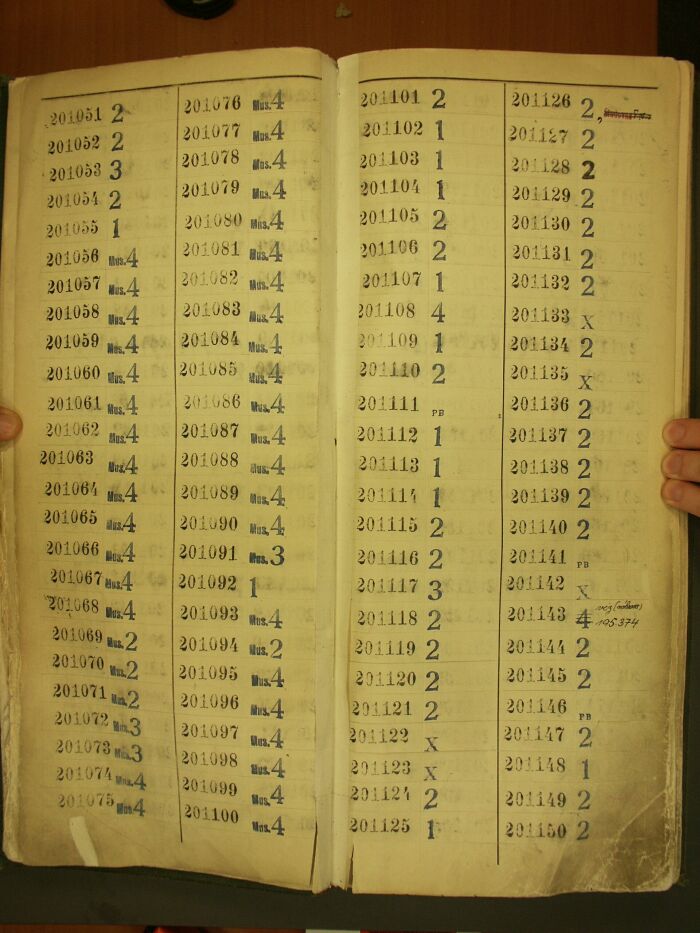 201051 2
201052 2
201053 3
201054 2
201055 1
201056 Mus. 4
201057 Mus. 4
201058 Mus. 4
201059 Mus. 4
201060 Mus. 4
201061 Mus. 4
201062 Mus. 4
201063 Mus. 4
201064 Mus. 4
201065 Mus. 4
201066 Mus. 4
201067 Mus. 4
201068 Mus. 4
201069 Mus. 2
201070 Mus. 2
201071 Mus. 2
201072 Mus. 3
201073 Mus. 3
201074 Mus. 4
201075 Mus. 4
201076 Mus. 4
201077 Mus. 4
201078 Mus. 4
201079 Mus. 4
201080 Mus. 4
201081 Mus. 4
201082 Mus. 4
201083 Mus. 4
201084 Mus. 4
201085 Mus. 4
201086 Mus. 4
201087 Mus. 4
201088 Mus. 4
201089 Mus. 4
201090 Mus. 4
201091 Mus. 3
201092 1
201093 Mus. 4
201094 Mus. 2
201095 Mus. 4
201096 Mus. 4
201097 Mus. 4
201098 Mus. 4
201099 Mus. 4
201100 Mus. 4
201101 2
201102 1
201103 1
201104 1
201105 2
201106 2
201107 1
201108 4
201109 1
201110 2
201111 PB
201112 1
201113 1
201114 1
201115 2
201116 2
201117 3
201118 2
201119 2
201120 2
201121 2
201122 X
201123 X
201124 2
201125 1
201126 2,
201127 2
201128 2
201129 2
201130 2
201131 2
201132 2
201133 X
201134 2
201135 X
201136 2
201137 2
201138 2
201139 2
201140 2
201141 PB
201142 X
201143 4 195.374
201144 2
201145 2
201146 PB
201147 2
201148 1
201149 2
201150 2